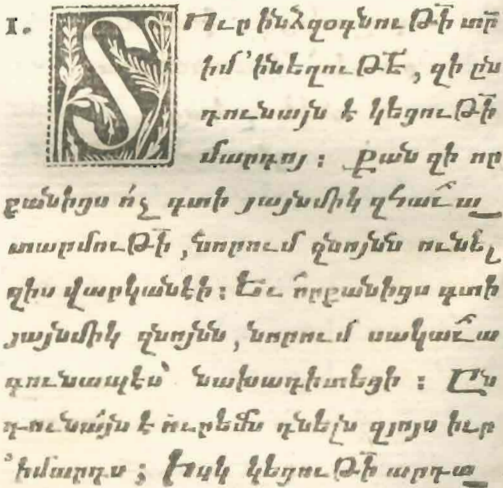 1. ՏՈւր ինձ զօգնութի՟ տր՟
իմ ՚ի նեղութե՟, զի ըն
դունայն է կեցութի՟
մարդոյ : Քանզի որ
քանիցս ո՛չ գտի յայնմիկ զհաւա_
տարմութի՟, յորում զնոյնն ունել
զիս վարկանէի : Եւ որքանիցս գտի
յայնմիկ զնոյնն, յորում սակաւա
գունապէս նախագիտեցի : Ըն
դունայն է ուրեմն դնելս զյոյս իւր
՚ի մարդս ; Իսկ կեցութի՟ արդա_